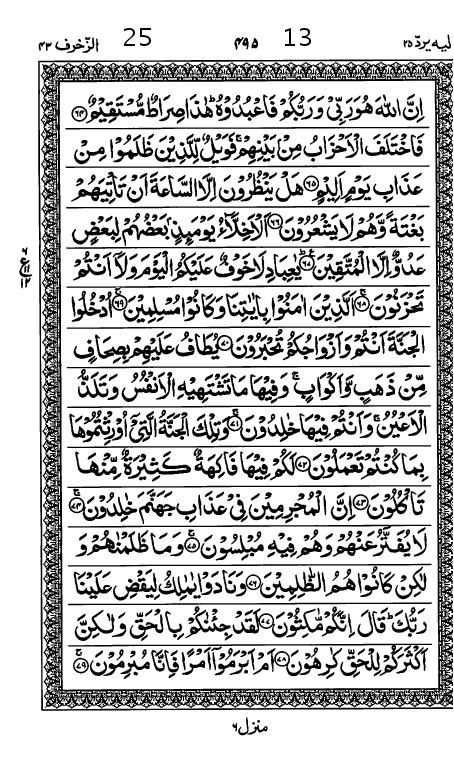 الزّخرف ٤٣ 25 ٤٩٥ 13 اليه يردّ ٢٥
اِنَّ اللّٰهَ هُوَ رَبِّيْ وَرَبُّكُمْ فَاعْبُدُوْهُ ؕ هٰذَا صِرَاطٌ مُّسْتَقِيْمٌ ﴿۶۴﴾
فَاخْتَلَفَ الْاَحْزَابُ مِنْۢ بَيْنِهِمْ ۚ فَوَيْلٌ لِّلَّذِيْنَ ظَلَمُوْا مِنْ
عَذَابِ يَوْمٍ اَلِيْمٍ ﴿۶۵﴾ هَلْ يَنْظُرُوْنَ اِلَّا السَّاعَةَ اَنْ تَاْتِيَهُمْ
بَغْتَةً وَّهُمْ لَا يَشْعُرُوْنَ ﴿۶۶﴾ اَلْاَخِلَّآءُ يَوْمَىِٕذٍۭ بَعْضُهُمْ لِبَعْضٍ
عَدُوٌّ اِلَّا الْمُتَّقِيْنَ ﴿۶۷﴾ يٰعِبَادِ لَا خَوْفٌ عَلَيْكُمُ الْيَوْمَ وَلَاۤ اَنْتُمْ
تَحْزَنُوْنَ ﴿۶۸﴾ اَلَّذِيْنَ اٰمَنُوْا بِاٰيٰتِنَا وَكَانُوْا مُسْلِمِيْنَ ﴿۶۹﴾ اُدْخُلُوا
الْجَنَّةَ اَنْتُمْ وَاَزْوَاجُكُمْ تُحْبَرُوْنَ ﴿۷۰﴾ يُطَافُ عَلَيْهِمْ بِصِحَافٍ
مِّنْ ذَهَبٍ وَّاَكْوَابٍ ۚ وَفِيْهَا مَا تَشْتَهِيْهِ الْاَنْفُسُ وَتَلَذُّ
الْاَعْيُنُ ۚ وَاَنْتُمْ فِيْهَا خٰلِدُوْنَ ﴿۷۱﴾ وَتِلْكَ الْجَنَّةُ الَّتِيْۤ اُوْرِثْتُمُوْهَا
بِمَا كُنْتُمْ تَعْمَلُوْنَ ﴿۷۲﴾ لَكُمْ فِيْهَا فَاكِهَةٌ كَثِيْرَةٌ مِّنْهَا
تَاْكُلُوْنَ ﴿۷۳﴾ اِنَّ الْمُجْرِمِيْنَ فِيْ عَذَابِ جَهَنَّمَ خٰلِدُوْنَ ﴿۷۴﴾
لَا يُفَتَّرُ عَنْهُمْ وَهُمْ فِيْهِ مُبْلِسُوْنَ ﴿۷۵﴾ وَمَا ظَلَمْنٰهُمْ وَ
لٰكِنْ كَانُوْا هُمُ الظّٰلِمِيْنَ ﴿۷۶﴾ وَنَادَوْا يٰمٰلِكُ لِيَقْضِ عَلَيْنَا
رَبُّكَ ؕ قَالَ اِنَّكُمْ مّٰكِثُوْنَ ﴿۷۷﴾ لَقَدْ جِئْنٰكُمْ بِالْحَقِّ وَلٰكِنَّ
اَكْثَرَكُمْ لِلْحَقِّ كٰرِهُوْنَ ﴿۷۸﴾ اَمْ اَبْرَمُوْۤا اَمْرًا فَاِنَّا مُبْرِمُوْنَ ﴿۷۹﴾
۶
ع
۱۱
۱۲
منزل ۶